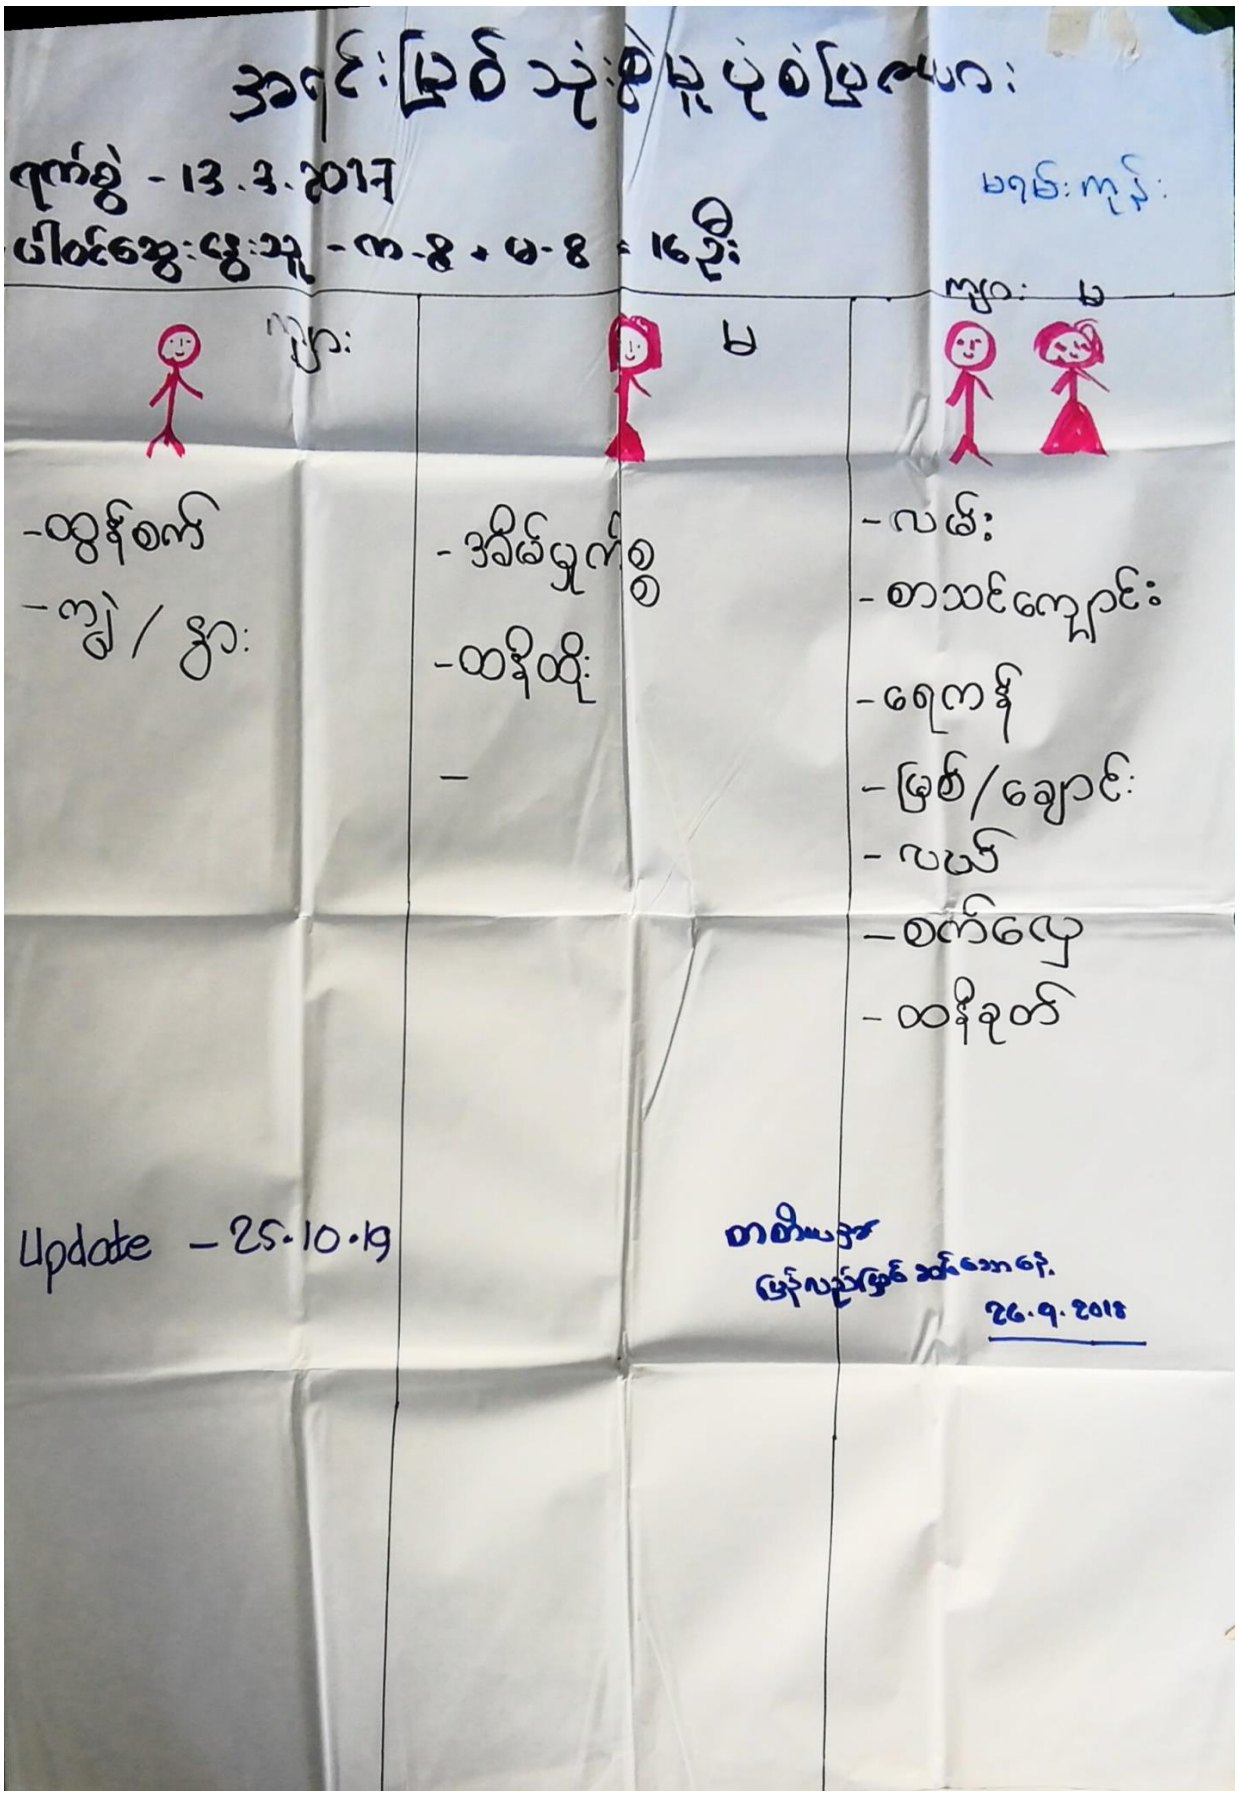 အရင်းမြစ်သုံးစွဲမှုပုံစံပြဇယား
ရက်စွဲ - 13.3.2017
မရမ်းကုန်း
ပါဝင်ဆွေးနွေးသူ - ကျ - ၄ + မ - ၄ = 16 ဦး
ကျား မ
ကျား
မ
- ထွန်စက်
- ကျွဲ / နွား
- အိမ်မှုကိစ္စ
- ထနီထိုး
-
- လမ်း
- စာသင်ကျောင်း
- ရေကန်
- မြစ်/ချောင်း
- လယ်
- စက်လှေ
- ထနီခုတ်
Update - 25.10.19
တတိယ
ပြန်လည်
26.9.2018